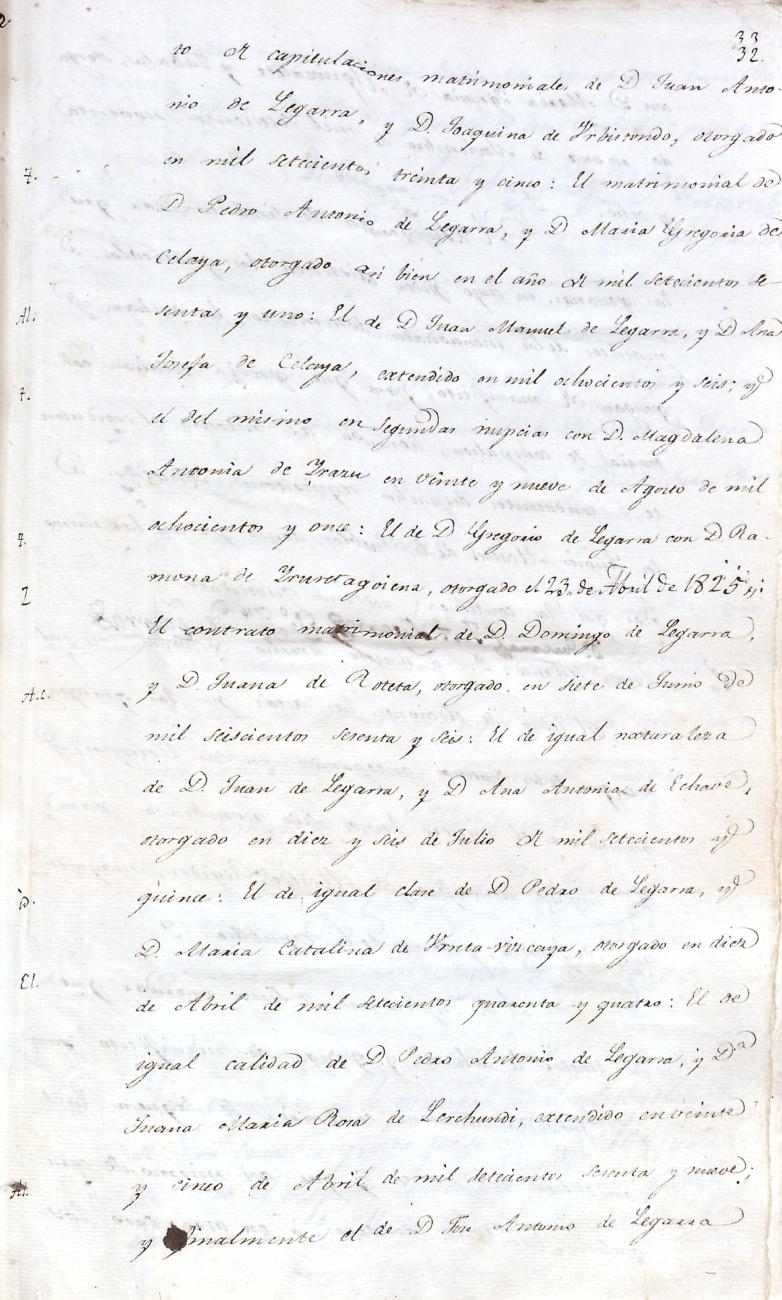 33
32.
to de capitulaciones matrimoniales de D Juan Anto-
nio de Legarra, y D. Joaquina de Urbistondo, otorgado
en mil setecientos treinta y cinco: El matrimonial de
D Pedro Antonio de Legarra, y D Maria Gregoria de
Celaya, otorgado asi bien en el año de mil setecientos se-
senta y uno: El de D Juan Manuel de Legarra, y D Ana
Josefa de Celaya, extendido en mil ochocientos y seis; y
el del mismo en segundas nupcias con D. Magdalena
Antonia de Yrazu en veinte y nueve de Agosto de mil
ochocientos y once: El de D Gregorio de Legarra con D Ra-
mona de Yruretagoiena, otorgado el 23 de Abril de 1825
El contrato matrimonial de D. Domingo de Legarra,
y D Juana de Roteta, otorgado en siete de Junio de
mil seiscientos sesenta y seis: El de igual naturaleza
de D. Juan de Legarra, y D Ana Antonia de Echave,
otorgado en diez y seis de Julio de mil setecientos y
quince: El de igual clase de D Pedro de Legarra, y
D. Maria Catalina de Yrreta-vizcaya, otorgado en diez
de Abril de mil setecientos quarenta y quatro: El de
igual calidad de D. Pedro Antonio de Legarra, y Dª
Juana Maria Rosa de Lerchundi, extendido en veinte
y cinco de Abril de mil setecientos sesenta y nueve;
y finalmente el de D Jose Antonio de Legarra